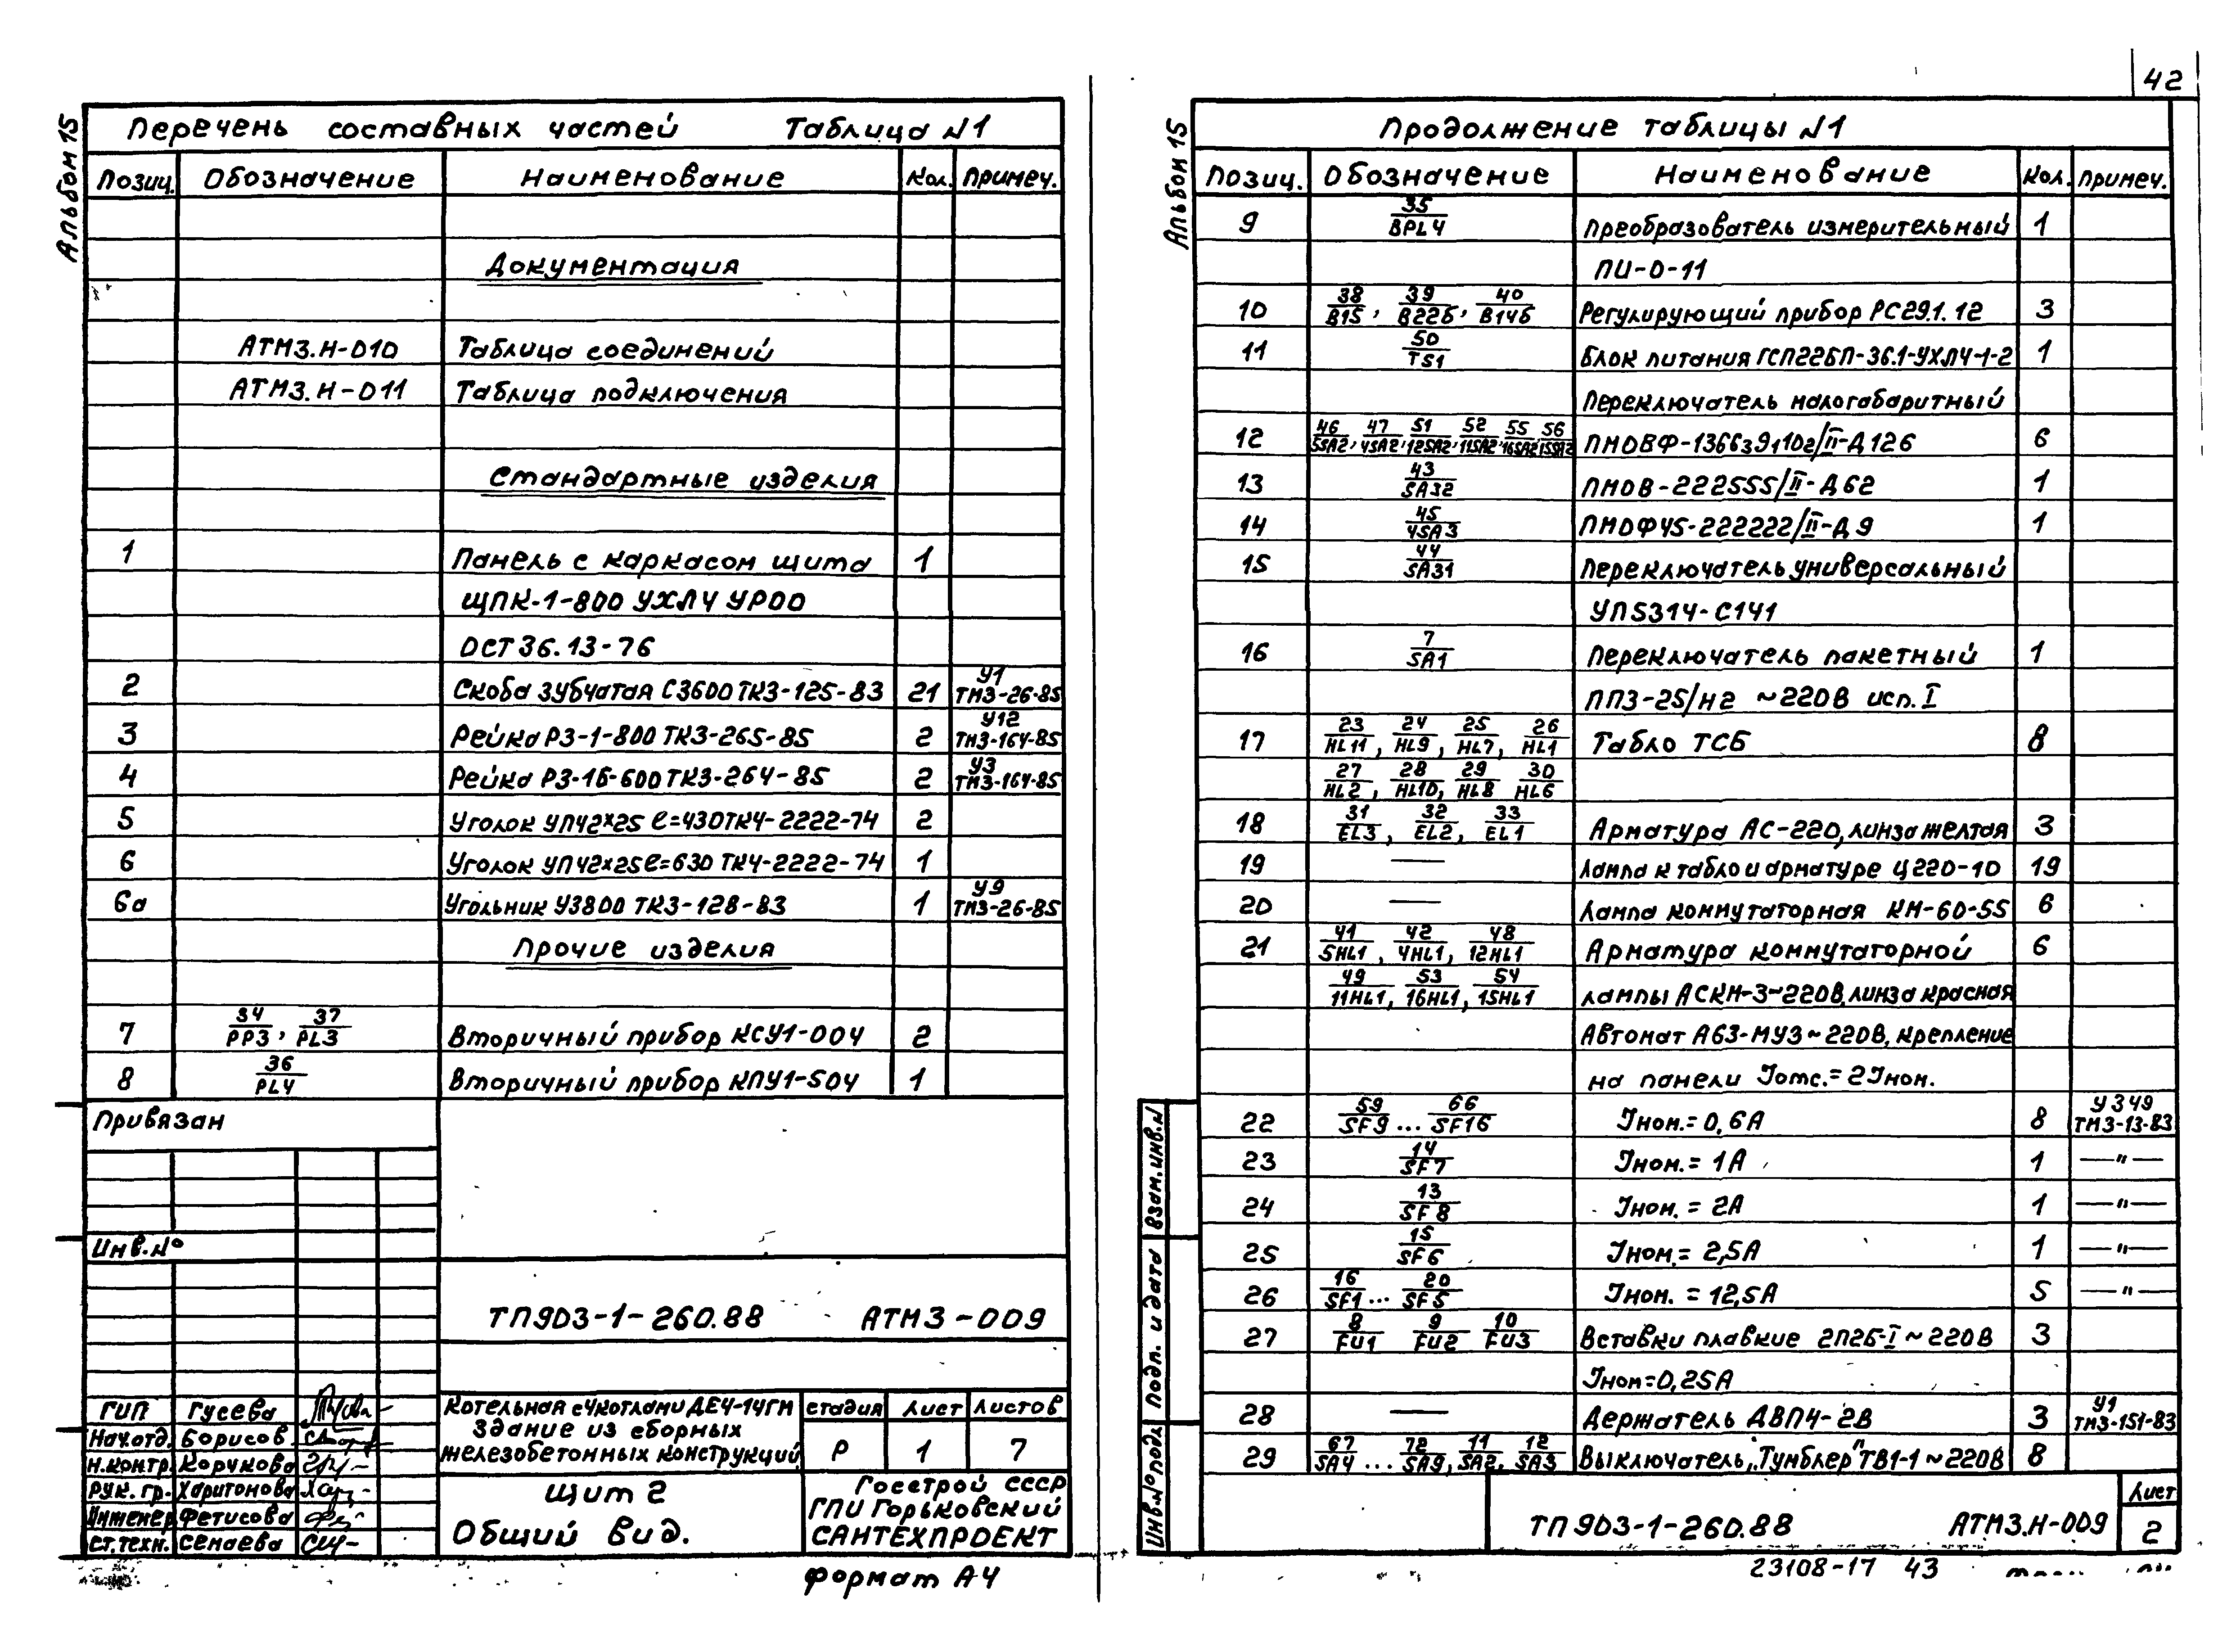 42
Альбом 15
Перечень составных частей Таблица N1
Позиц. Обозначение Наименование Кол. Примеч.
Документация
АТМ3.Н-010 Таблица соединений
АТМ3.Н-011 Таблица подключения
Стандартные изделия
1 Панель с каркасом щита 1
ЩПК-1-800 УХЛ4 УР00
ОСТ 36.13-76
2 Скоба зубчатая С3600 ТК3-125-83 21 У1 ТМ3-26-85
3 Рейка Р3-1-800 ТК3-265-85 2 У12 ТМ3-164-85
4 Рейка Р3-1Б-600 ТК3-264-85 2 У3 ТМ3-164-85
5 Уголок УП42×25 ℓ=430 ТК4-2222-74 2
6 Уголок УП42×25 ℓ=630 ТК4-2222-74 1
6а Угольник У3800 ТК3-128-83 1 У9 ТМ3-26-85
Прочие изделия
7 34/РР3, 37/PL3 Вторичный прибор КСУ1-004 2
8 36/PL4 Вторичный прибор КПУ1-504 1
Привязан
Инв.№
ТП903-1-260.88 АТМ3-009
ГИП Гусева
Нач.отд. Борисов
Н.контр. Корчкова
Рук. гр. Харитонова
Инженер Фетисова
Ст.техн. Сенаева
Котельная с 4 котлами ДЕ4-14ГМ
Здание из сборных
железобетонных конструкций
Стадия Лист Листов
Р 1 7
Щит 2
Общий вид.
Госстрой СССР
ГПИ Горьковский
САНТЕХПРОЕКТ
Формат А4
Альбом 15
Продолжение таблицы N1
Позиц. Обозначение Наименование Кол. Примеч.
9 35/BPL4 Преобразователь измерительный 1
ПИ-0-11
10 38/В1Б, 39/В22Б, 40/В14Б Регулирующий прибор РС29.1.12 3
11 50/TS1 Блок питания ГСП22БП-36.1-УХЛ4-1-2 1
Переключатель малогабаритный
12 46/5SA2, 47/4SA2, 51/12SA2, 52/11SA2, 55/16SA2, 56/15SA2 ПМОВФ-1366391102/II-Д126 6
13 43/SA32 ПМОВ-222555/II-Д62 1
14 45/4SA3 ПМОФ45-222222/II-Д9 1
15 44/SA31 Переключатель универсальный
УП5314-С141
16 7/SA1 Переключатель пакетный 1
ПП3-25/Н2 ~220В исп. I
17 23/HL11, 24/HL9, 25/HL7, 26/HL1 Табло ТСБ 8
27/HL2, 28/HL10, 29/HL8 30/HL6
18 31/EL3, 32/EL2, 33/EL1 Арматура АС-220, линза желтая 3
19 — Лампа к табло и арматуре Ц220-10 19
20 — Лампа коммутаторная КМ-60-55 6
21 41/5HL1, 42/4HL1, 48/12HL1 Арматура коммутаторной 6
49/11HL1, 53/16HL1, 54/15HL1 лампы АСКМ-3-220В, линза красная
Автомат А63-МУ3 ~220В, крепление
на панели Iотс.=2Iном.
22 59/SF9 ... 66/SF16 Iном.=0,6А 8 У349 ТМ3-13-83
23 14/SF7 Iном.=1А 1 —"—
24 13/SF8 Iном.=2А 1 —"—
25 15/SF6 Iном.=2,5А 1 —"—
26 16/SF1 ... 20/SF5 Iном.=12,5А 5 —"—
27 8/FU1 9/FU2 10/FU3 Вставки плавкие 2П2Б-I ~220В 3
Iном=0,25А
28 — Держатель ДВП4-2В 3 У1 ТМ3-151-83
29 67/SA4 ... 72/SA9, 11/SA2, 12/SA3 Выключатель „Тумблер" ТВ1-1 ~220В 8
Взам.инв.N
Подп. и дата
Инв.№подл
ТП903-1-260.88 АТМ3.Н-009
Лист
2
23108-17 43